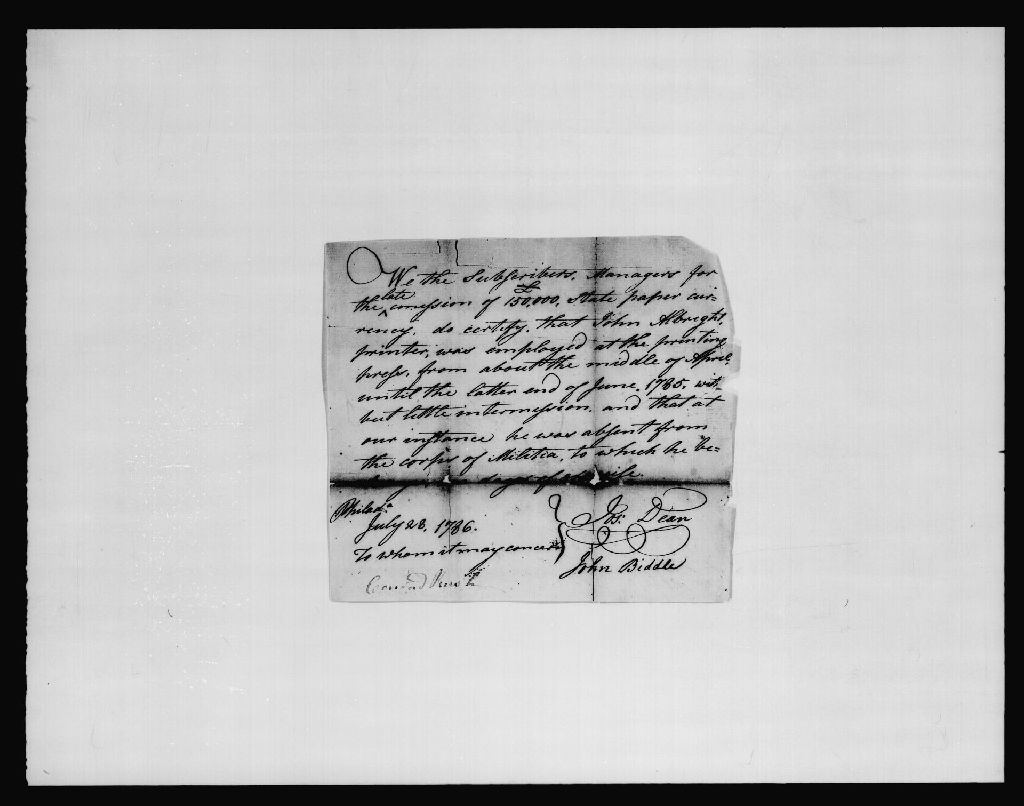 We the Subscribers, Managers for
the late emission of £150,000, State paper cur-
rency, do certify, that John Albright,
printer, was employed at the printing
press, from about the middle of April
until the latter end of June, 1785, wit-
but little intermission, and that at
our instance he was absent from
the corps of Militia, to which he be-
days of
Philada.
July 28, 1786.
To whom it may concern
Jos: Dean
John Biddle